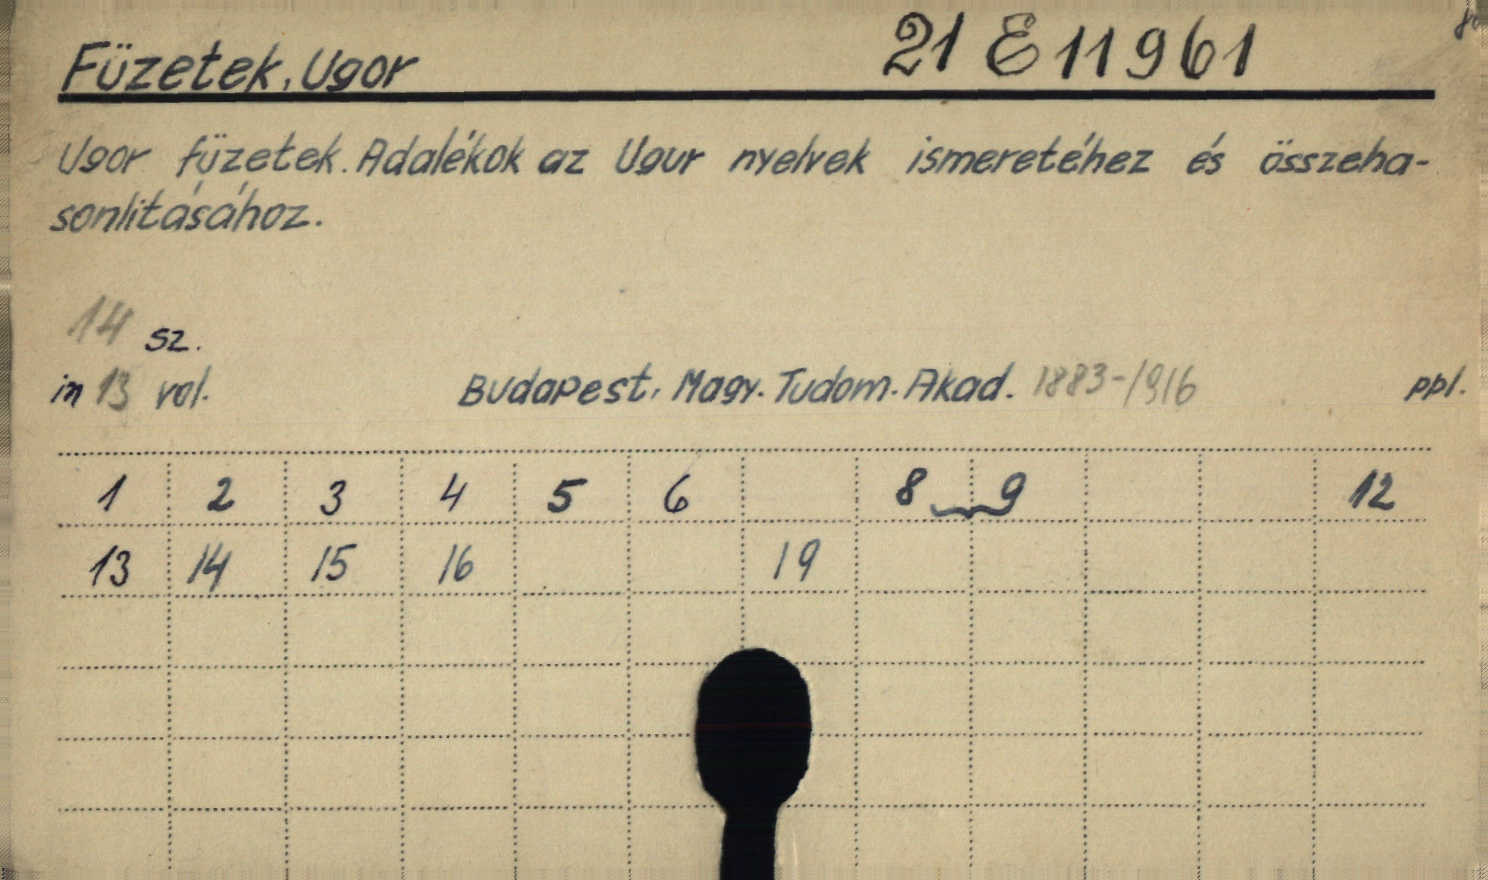 Füzetek, Ugor 21 E 11961
Ugor füzetek. Adalékok az Ugur nyelvek ismeretéhez és összeha-
sonlitásához.
14 sz.
in 13 vol. Budapest, Magy. Tudom. Akad. 1883-1916 ppl.
1 2 3 4 5 6 8 9 12
13 14 15 16 19